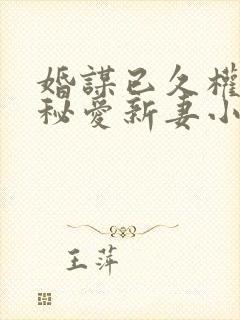 婚謀已久權
秘愛新妻小
王萍